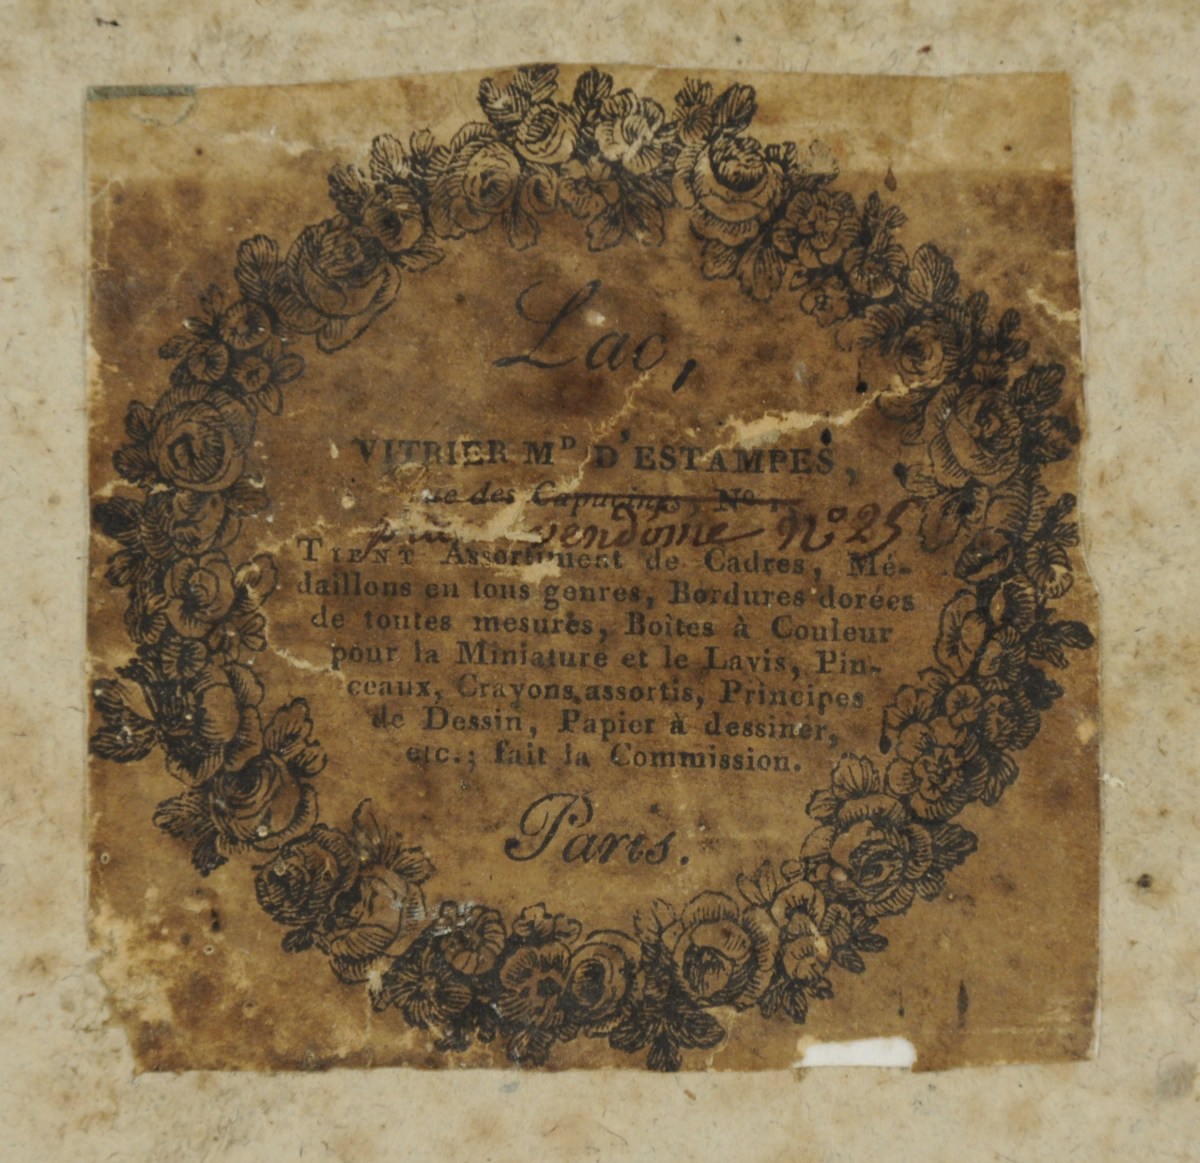 Lac,
VITRIER MD D'ESTAMPES,
rue des Capucines, No
vendome No 25
TIENT Assortiment de Cadres, Mé-
daillons en tous genres, Bordures dorées
de toutes mesures, Boîtes à Couleur
pour la Miniature et le Lavis, Pin-
ceaux, Crayons assortis, Principes
de Dessin, Papier à dessiner,
etc.; fait la Commission.
Paris.